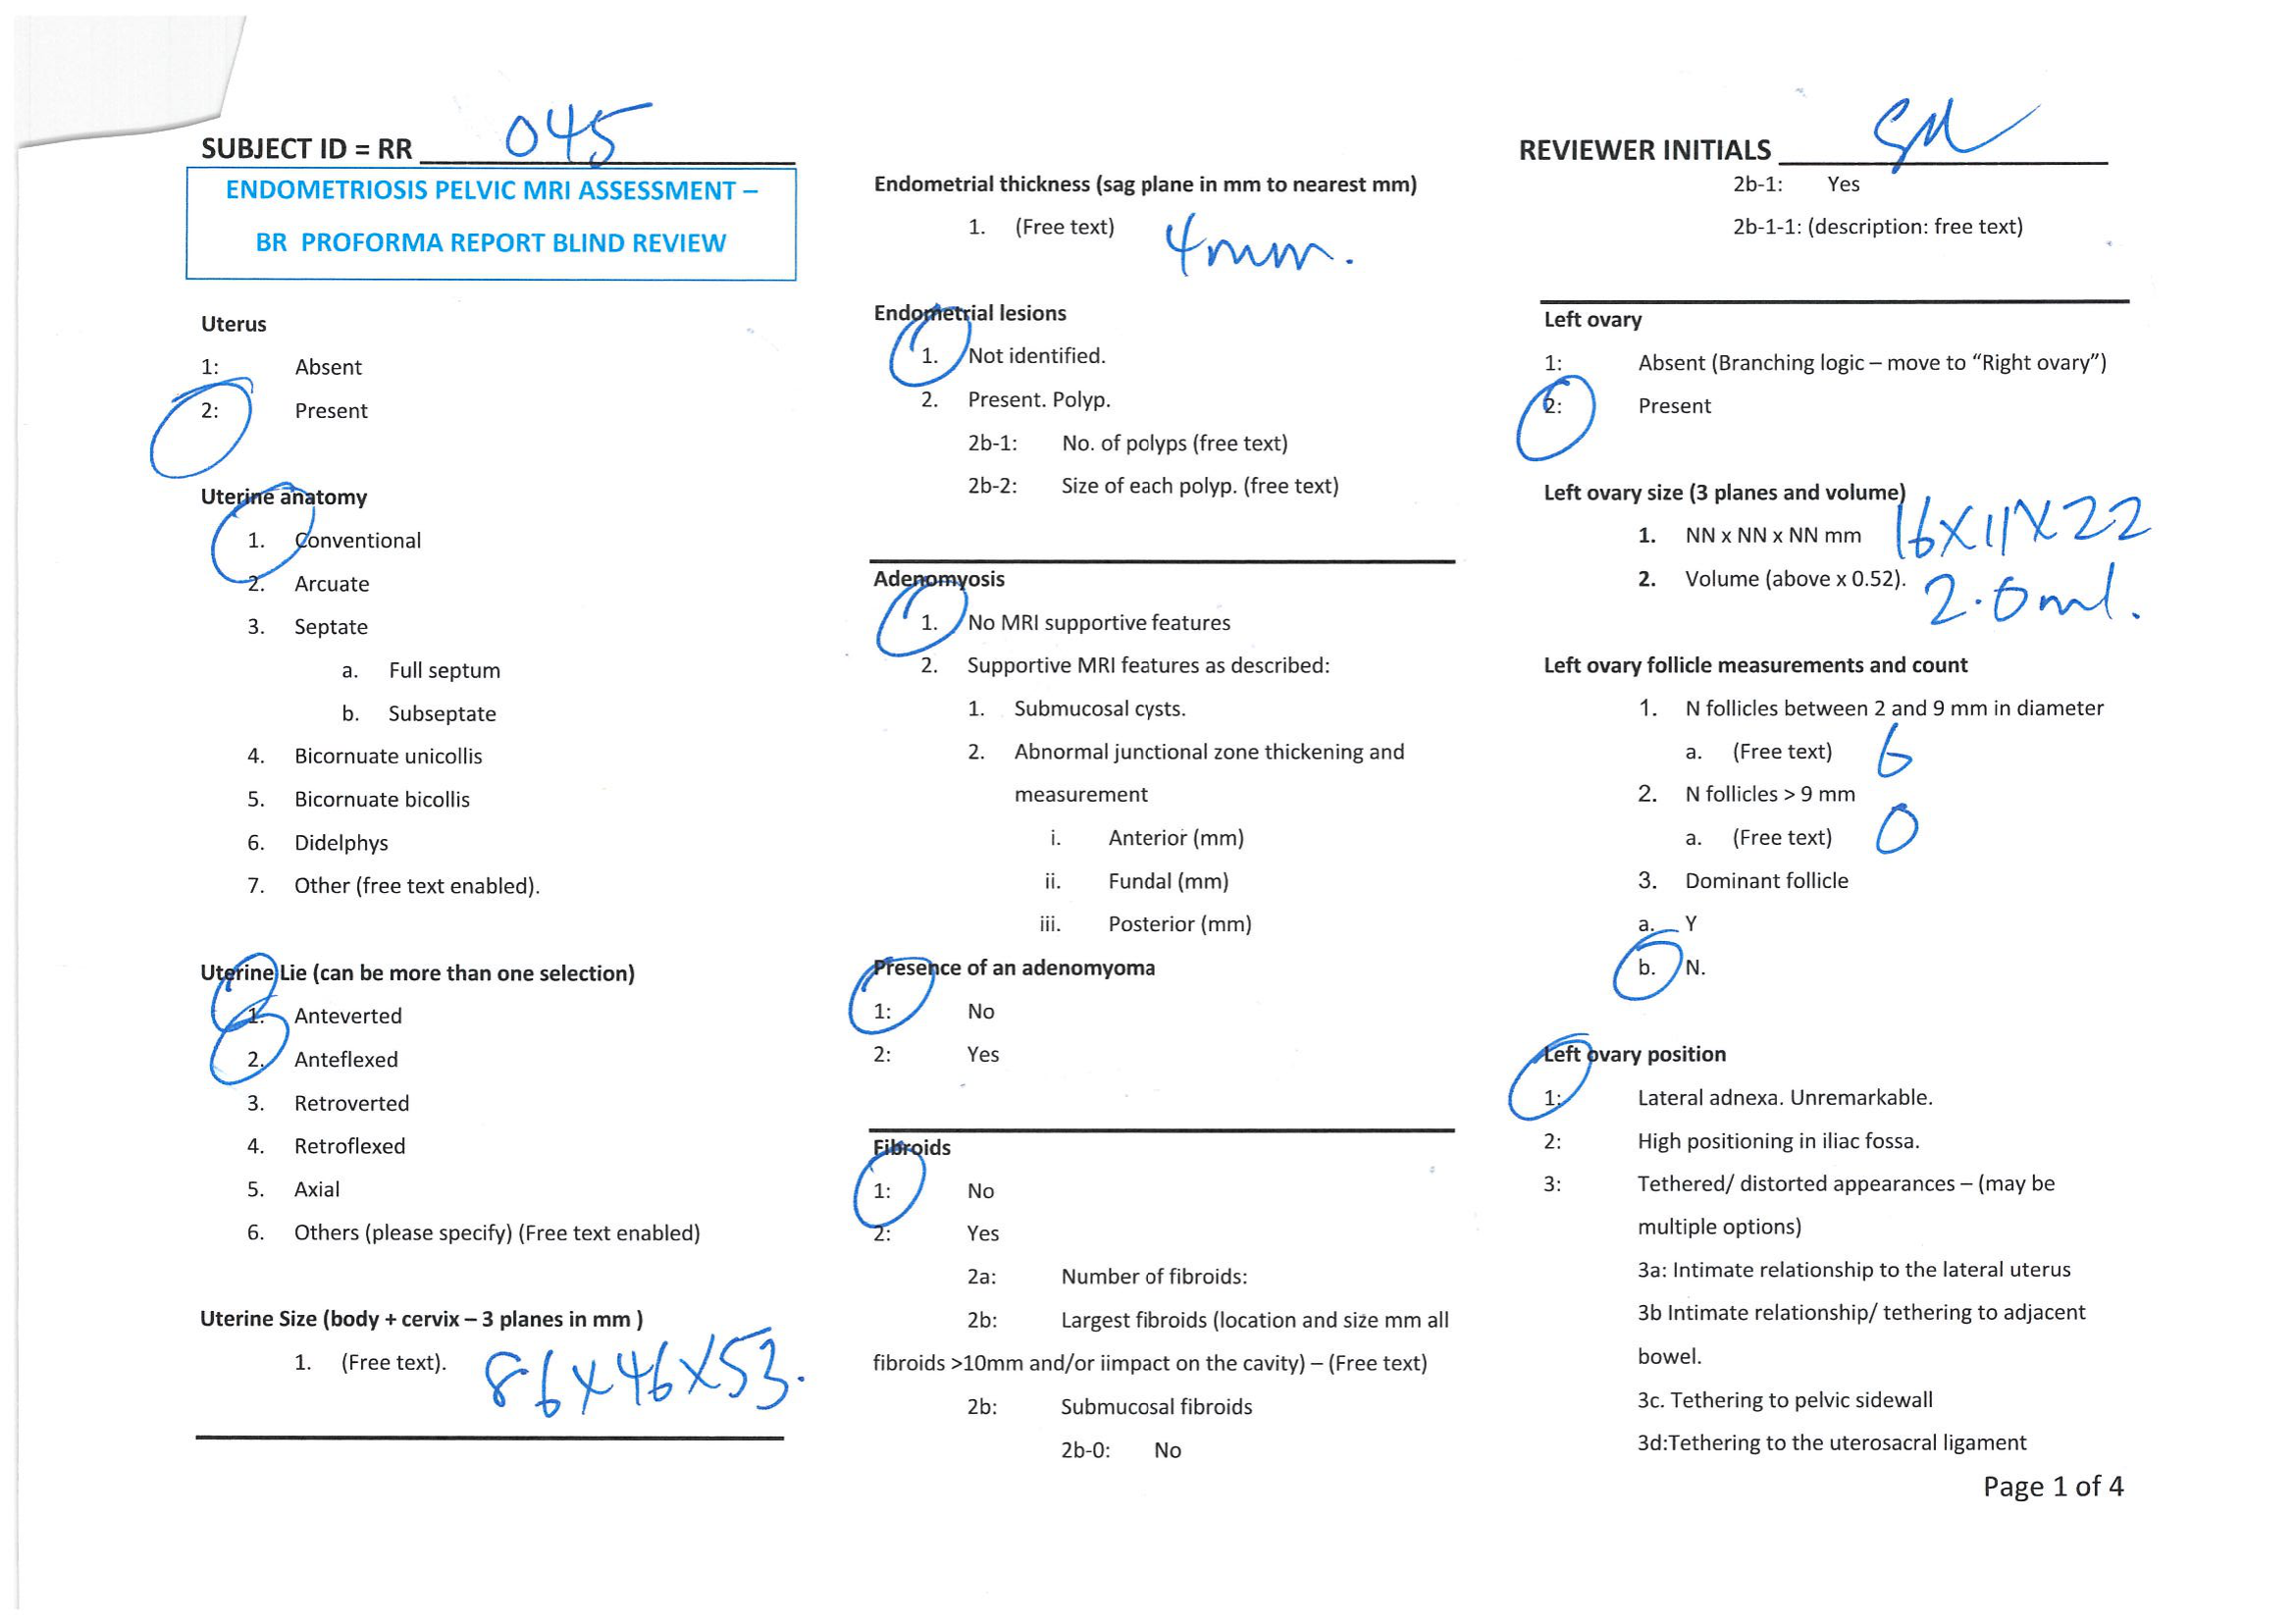 SUBJECT ID = RR 045
ENDOMETRIOSIS PELVIC MRI ASSESSMENT –
BR PROFORMA REPORT BLIND REVIEW
Uterus
1: Absent
2: Present
Uterine anatomy
1. Conventional
2. Arcuate
3. Septate
a. Full septum
b. Subseptate
4. Bicornuate unicollis
5. Bicornuate bicollis
6. Didelphys
7. Other (free text enabled).
Uterine Lie (can be more than one selection)
1. Anteverted
2. Anteflexed
3. Retroverted
4. Retroflexed
5. Axial
6. Others (please specify) (Free text enabled)
Uterine Size (body + cervix – 3 planes in mm )
1. (Free text). 86x46x53.
Endometrial thickness (sag plane in mm to nearest mm)
1. (Free text) 4mm.
Endometrial lesions
1. Not identified.
2. Present. Polyp.
2b-1: No. of polyps (free text)
2b-2: Size of each polyp. (free text)
Adenomyosis
1. No MRI supportive features
2. Supportive MRI features as described:
1. Submucosal cysts.
2. Abnormal junctional zone thickening and
measurement
i. Anterior (mm)
ii. Fundal (mm)
iii. Posterior (mm)
Presence of an adenomyoma
1: No
2: Yes
Fibroids
1: No
2: Yes
2a: Number of fibroids:
2b: Largest fibroids (location and size mm all
fibroids >10mm and/or iimpact on the cavity) – (Free text)
2b: Submucosal fibroids
2b-0: No
REVIEWER INITIALS
2b-1: Yes
2b-1-1: (description: free text)
Left ovary
1: Absent (Branching logic – move to “Right ovary”)
2: Present
Left ovary size (3 planes and volume)
1. NN x NN x NN mm 16x11x22
2. Volume (above x 0.52). 2.0ml.
Left ovary follicle measurements and count
1. N follicles between 2 and 9 mm in diameter
a. (Free text) 6
2. N follicles > 9 mm
a. (Free text) 0
3. Dominant follicle
a. Y
b. N.
Left ovary position
1: Lateral adnexa. Unremarkable.
2: High positioning in iliac fossa.
3: Tethered/ distorted appearances – (may be
multiple options)
3a: Intimate relationship to the lateral uterus
3b Intimate relationship/ tethering to adjacent
bowel.
3c. Tethering to pelvic sidewall
3d:Tethering to the uterosacral ligament
Page 1 of 4